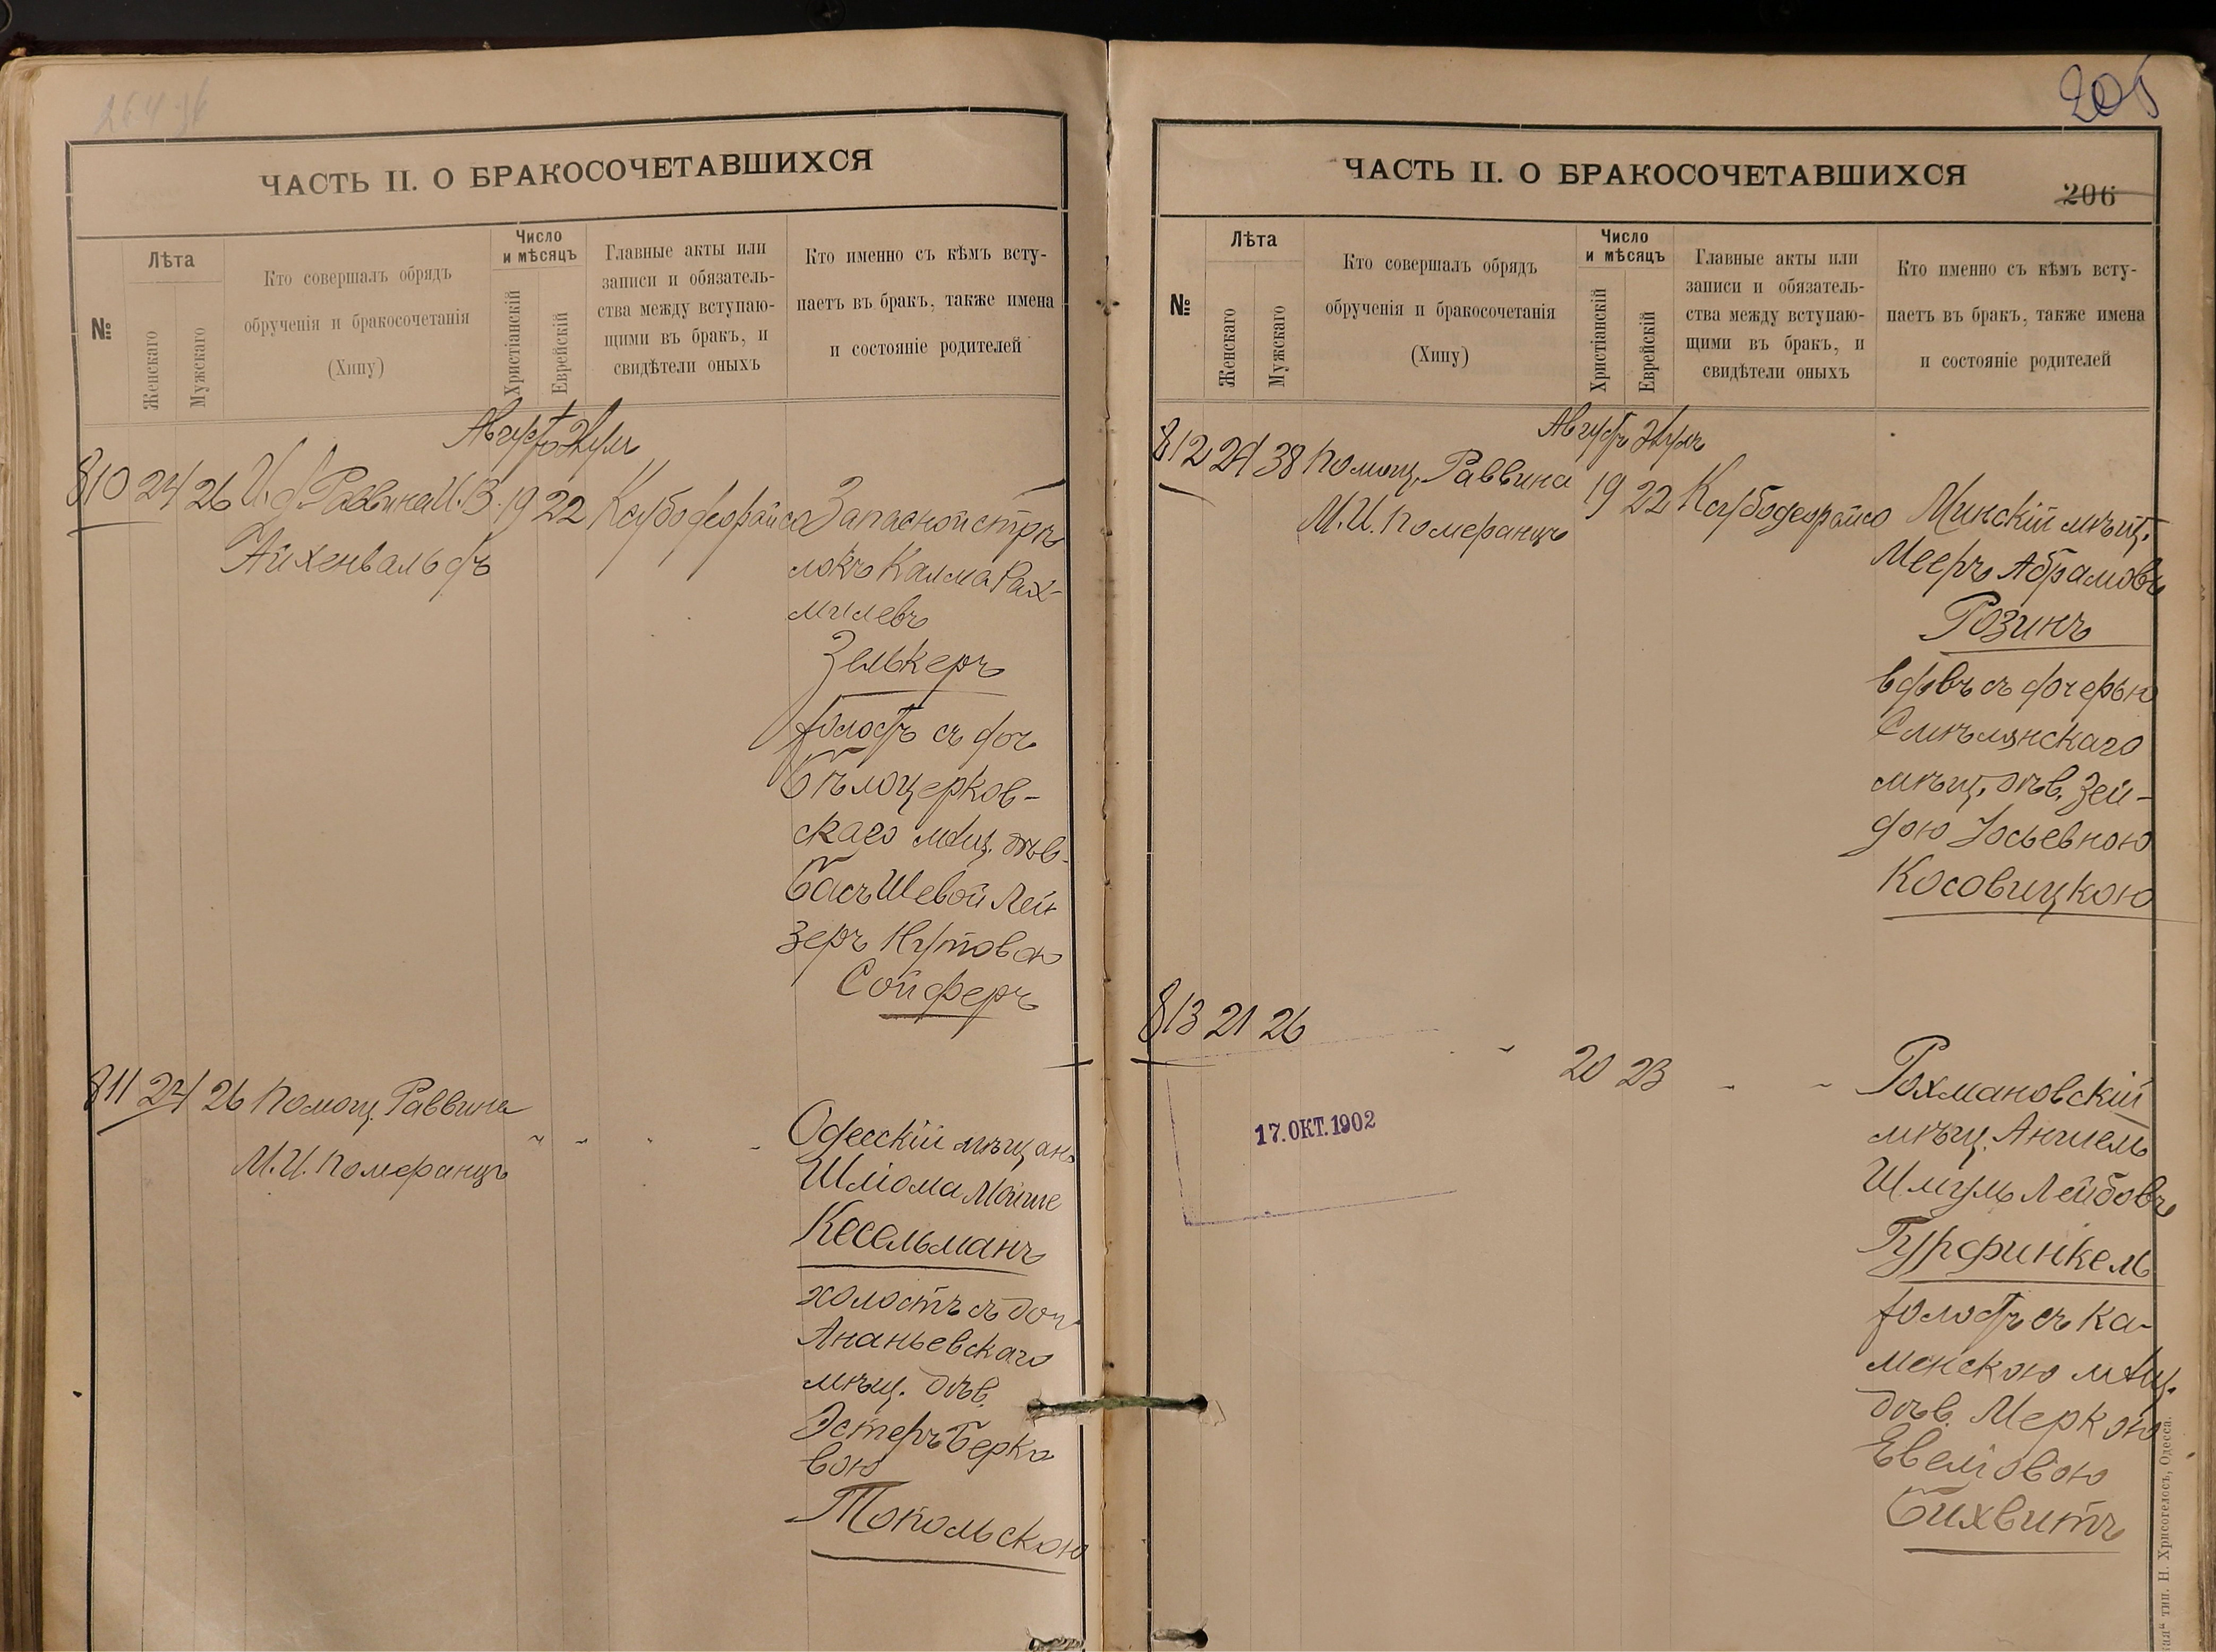 ЧАСТЬ II. О БРАКОСОЧЕТАВШИХСЯ
№
Лѣта
Женскаго
Мужскаго
Кто совершалъ обрядъ
обрученія и бракосочетанія
(Хипу)
Число
и мѣсяцъ
Христіанскій
Еврейскій
Главные акты или
записи и обязатель-
ства между вступаю-
щими въ бракъ, и
свидѣтели оныхъ
Кто именно съ кѣмъ всту-
паетъ въ бракъ, также имена
и состояніе родителей
Августъ
810 24 26 И. д. Раввина И. В. 19 22
Айхенвальдъ
Запасной стрѣ
локъ Калма Рах-
милевъ
Зелькеръ
холостъ съ доч
Бѣлоцерков-
скаго мѣщ. дѣв.
Бась Шевой Лей
зеръ Нутовою
Сойферъ
811 24 26 Помощ. Раввина
М. И. Померанцъ
Одесскій мѣщан
Шлiома Мойше
Кесельманъ
холостъ съ доч
Ананьевскаго
мѣщ. дѣв.
Эстеръ Берко
вою
Топольскою
205
ЧАСТЬ II. О БРАКОСОЧЕТАВШИХСЯ
206
№
Лѣта
Женскаго
Мужскаго
Кто совершалъ обрядъ
обрученія и бракосочетанія
(Хипу)
Число
и мѣсяцъ
Христіанскій
Еврейскій
Главные акты или
записи и обязатель-
ства между вступаю-
щими въ бракъ, и
свидѣтели оныхъ
Кто именно съ кѣмъ всту-
паетъ въ бракъ, также имена
и состояніе родителей
Августъ
812 24 38 Помощ. Раввина 19 22
М. И. Померанцъ
Минскій мѣщ.
Мееръ Абрамовъ
Розинъ
вдовъ съ дочерью
Смѣлянскаго
мѣщ. дѣв. Зей-
дою Іосьевною
Косовицкою
813 21 26
20 23
17. ОКТ. 1902
Рохмановскій
мѣщ. Аншель
Шмуль Лейбовъ
Гурфинкель
холостъ съ Ка-
менскою мѣщ.
дѣв. Меркою
Евелiовою
Бихвитъ
тип. Н. Хрисогелосъ, Одесса.